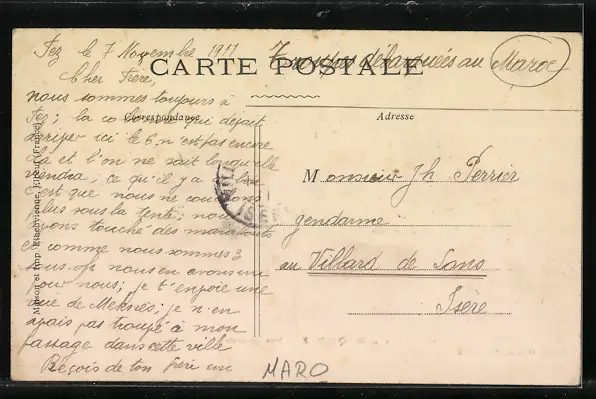 Fez le 7 Novembre 1911
Troupes débarquées au Maroc
CARTE POSTALE
Cher Frère,
nous sommes toujours à
Fez ; la colonne qui devait
Correspondance
Adresse
arriver ici le 6, n'est pas encore
là et l'on ne sait lorsqu'elle
viendra ; ce qu'il y a de
c'est que nous ne couchons
plus sous la tente ; nous
avons touché des marabouts
et comme nous sommes 3
sous-off nous en avons un
pour nous ; je t'envoie une
vue de Meknès ; je n'en
avais pas trouvé à mon
passage dans cette ville
Reçois de ton frère un
Monsieur Jh Perrier
gendarme
au Villard de Lans
Isère
Maison et Imp. Etiembre, (France)
MARO